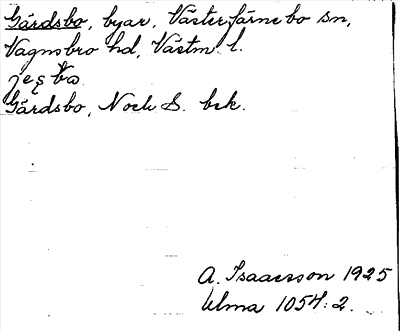 Gärdsbo, byar, Västerfärnebo sn,
Vagnsbro hd, Västm. l.
Gärdsbo, Norle S. bek.
A. Isaacsson 1925
Ulma 1054:2.